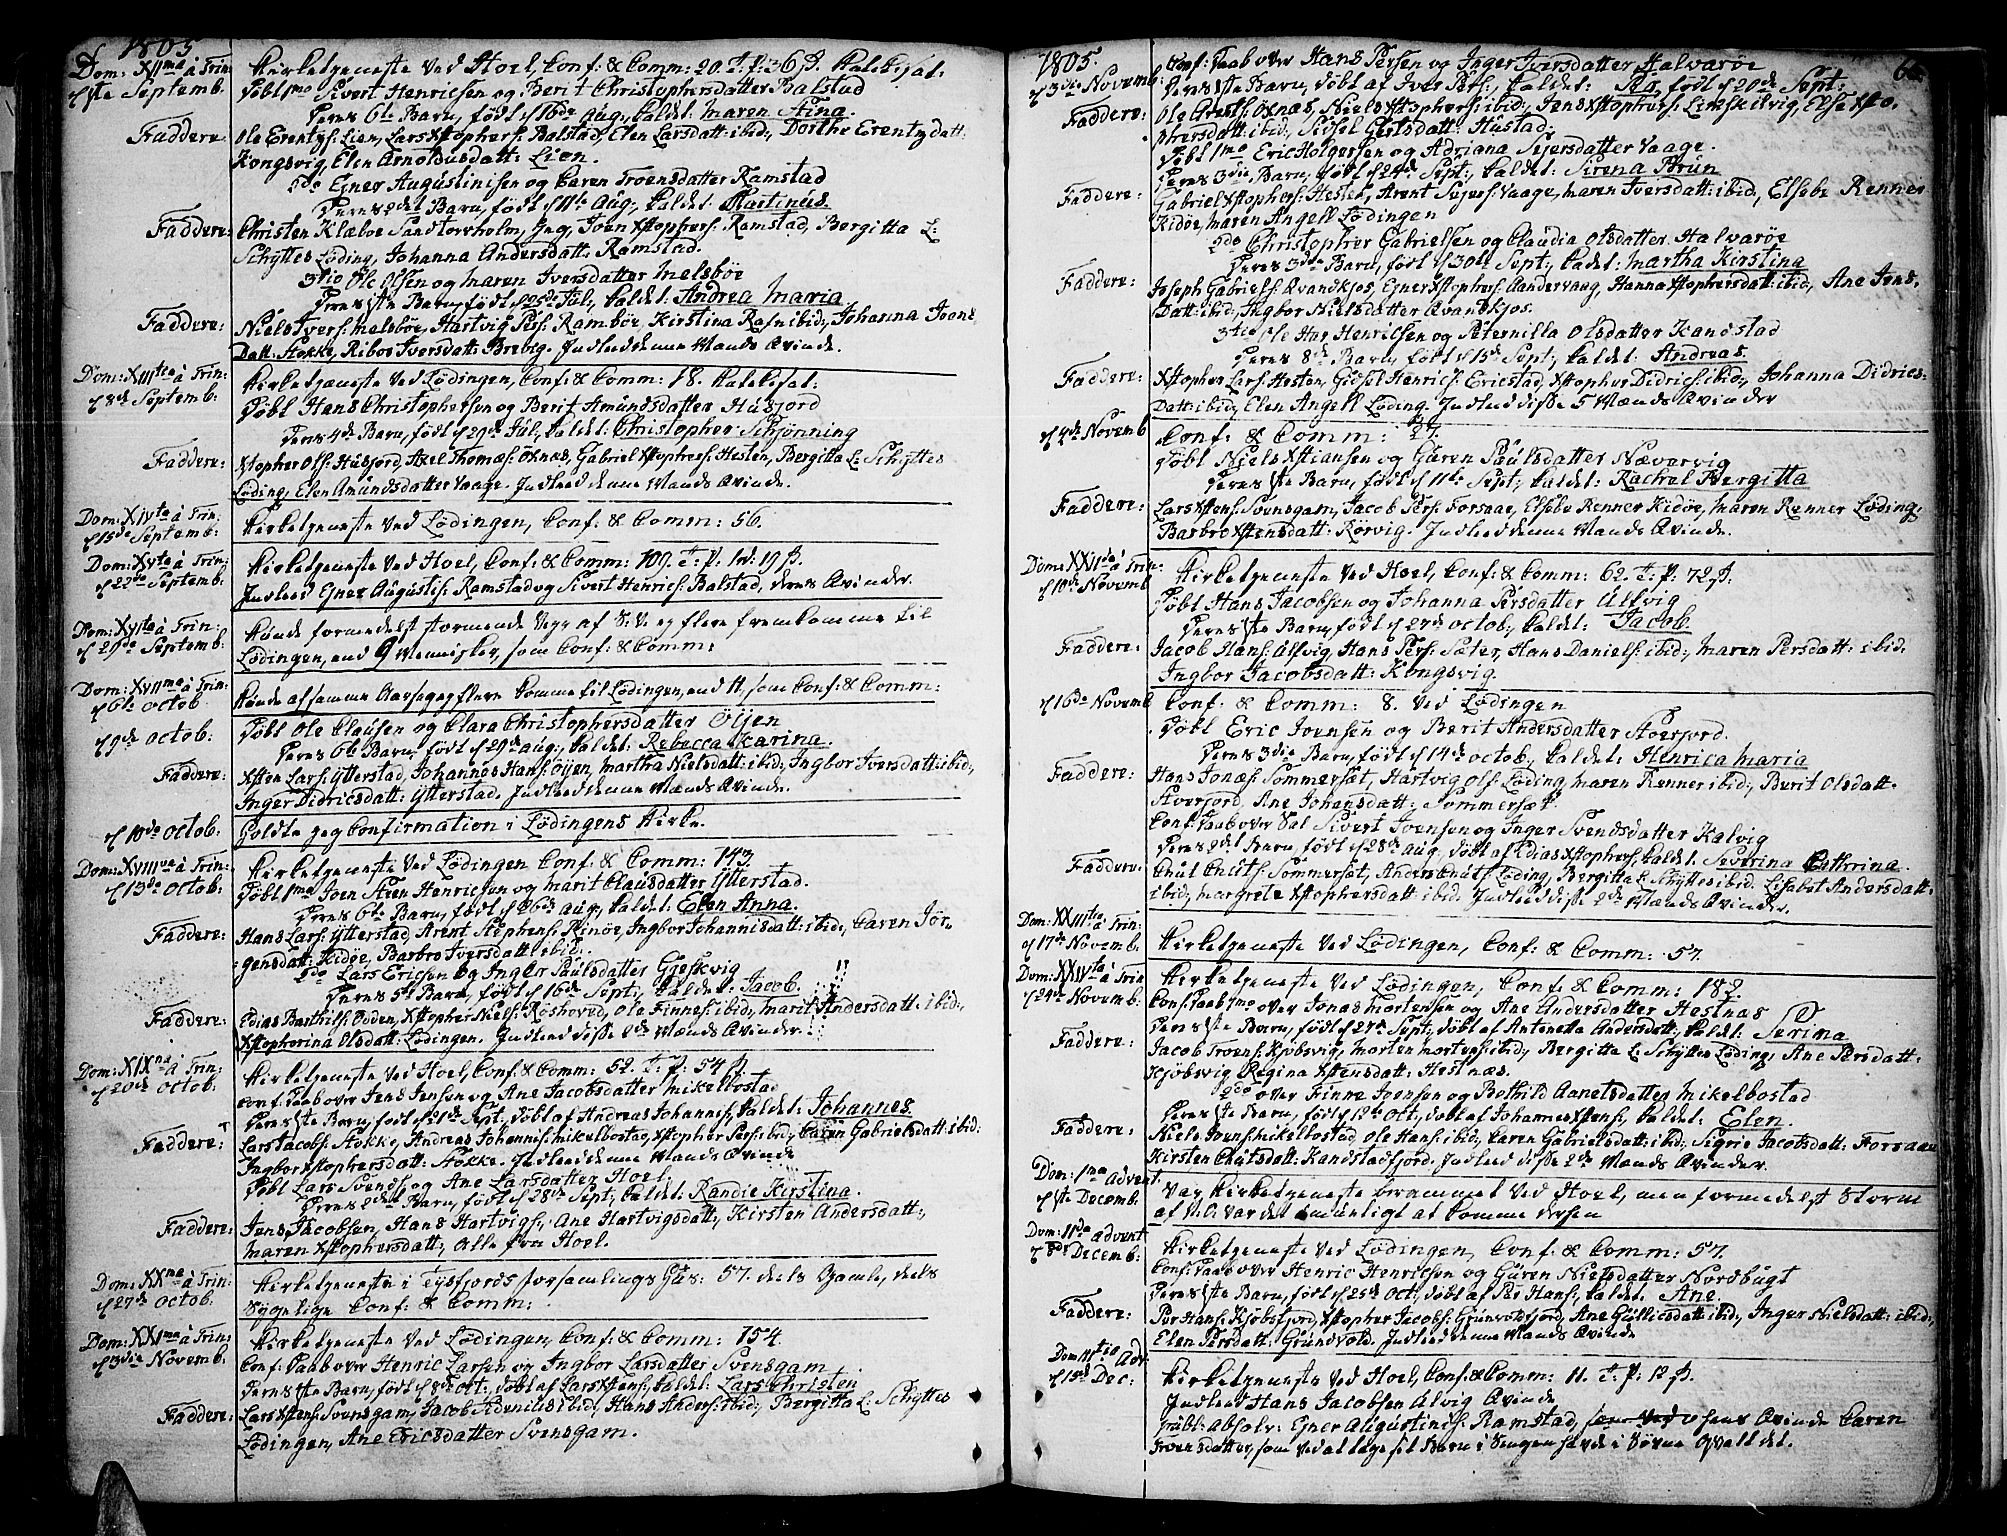 1805
Dom: XIIma à Trin:
d 1ste Septemb.
Kirketjeneste ved Hoel, Conf: & Comm: 20. T. p: 36 ß. Katekisat:
Døbt 1mo Sivert Henricsen og Berit Christophersdatter Balstad
Deres 6te Barn, født d 16de Aug:, kaldet: Maren Stina.
Faddere: Ole Erentzs: Lien, Lars Xstophers: Balstad, Elen Larsdatt: ibid:, Dorthe Erentzdatt:
Kongsvig, Elen Arnoldusdatt: Lien.
2do Ejner Augustinisen og Caren Troensdatter Ramstad
Deres 2det Barn, født d 11te Aug:, kaldet: Rastinus.
Faddere: Christen Klæboe Sandtorvholm, Joen Xstophers: Ramstad, Bergitta L:
Schyttes Løding, Johanna Andersdatt: Ramstad.
3tio Ole Olsen og Maren Iversdatter Melsbøe
Deres 1ste Barn, født d 25de Jul:, kaldet: Andrea Maria
Faddere: Niels Ivers: Melsbøe, Hartvig Pers: Rambøe, Kirstina Rafn ibid:, Johanna Joens
Datt: Stokke, Ribos Iversdatt: Brevig. Indleed denne Mands Qvinde.
Dom: XIIItia à Trin:
d 8de Septemb:
Kirketjeneste ved Lødingen, Conf: & Comm: 18. Katekisat:
Døbt Hans Christophersen og Berit Amundsdatter Husjord
Deres 4de Barn, født d 29de Jul:, kaldet: Christopher Schjønning
Faddere: Xstopher Ols: Husjord, Axel Thomæs: Oxnæs, Gabriel Xstophers: Hesten, Bergitta L: Schyttes
Løding, Elen Amundsdatter Vaage. Indleed denne Mands Qvinde.
Dom: XIVta à Trin:
d 15de Septemb:
Kirketjeneste ved Lødingen, Conf: & Comm: 56.
Dom: XVta à Trin:
d 22de Septemb:
Kirketjeneste ved Hoel, Conf: & Comm: 109. T. p. 19 ß.
Indleed Ejner Augustis: Ramstad og Sivert Henrics: Balstad, deres Qvinder.
Dom: XVIta à Trin:
d 29de Septemb:
Kunde formedelst stormende Vejr af S: V: ej flere fremkomme til
Lødingen, end 9 Mennisker, som Conf: & Comm:
Dom: XVIIma à Trin:
d 6te Octob
Kunde af samme Aarsag ej flere komme til Lødingen, end 11, som Conf: & Comm:
d 9de Octob:
Døbt Ole Clausen og Clara Christophersdatter Öÿen
Deres 6te Barn, født d 29de Aug:, kaldet: Rebecca Karina.
Faddere: Xsten Lars: Ytterstad, Johannes Hans: Öÿen, Martha Nielsdatt: ibid:, Ingbor Iversdatt: ibid:,
Inger Didricsdatt: Ytterstad. Indleed denne Mands Qvinde.
d 10de Octob:
Holdte jeg Confirmation i Lødingens Kirke.
Dom: XVIIIva à Trin:
d 13de Octob:
Kirketjeneste ved Lødingen Conf: & Comm: 143.
Døbt 1mo Joen Steen Henricsen og Marit Clausdatter Ytterstad.
Deres 6te Barn, født d 26de Aug:, kaldet: Elen Anna.
Faddere: Hans Lars: Ytterstad, Arent Stephens: Rinøe, Ingbor Johannisdatt: ibid:, Caren Jør-
gensdatt: Kidøe, Barbro Iversdatt: ibid:
2do Lars Ericsen og Inger Paulsdatter Gjeskvig
Deres 5te Barn, født d 16de Sept:, kaldet: Jacob.
Faddere: Edias Barthils: Odden, Xstopher Niels: Roshoved, Ole Finnes: ibid:, Marit Andersdatt: ibid:,
Xstopherina Olsdatt: Lødingen. Indleed disse 2de Mænds Qvinder.
Dom: XIXna à Trin:
d 20de Octob:
Kirketjeneste ved Hoel, Conf: & Comm: 52. T. p: 54 ß.
Conf: Daab over Jens Jensen og Ane Jacobsdatter Mikelbostad
Deres 1ste Barn, født d 21de Sept:, døbt af Andreas Johannis:, kaldet: Johannes.
Faddere: Lars Jacobs: Stokke, Andreas Johannis: Mikelbostad, Xstopher Pers: ibid:, Caren Gabrielsdatt: ibid:
Ingbor Xstophersdatt: Stokke. Indleed denne Mands Qvinde
Døbt Lars Svends: og Ane Larsdatter Hoel,
Deres 2det Barn, født d 28de Sept:, kaldet: Randie Kirstina.
Faddere: Jens Jacobsen, Hans Hartvigs:, Ane Hartvigsdatt:, Kirsten Andersdatt:,
Maren Xstophersdatt:, alle fra Hoel.
Dom: XXma à Trin:
d 27de Octob:
Kirketjeneste i Tysfjords forsamlings Huus: 57. deels Gamle, deels
Sygelige Conf: & Comm:
Dom: XXIma à Trin:
d 3die Novemb:
Kirketjeneste ved Lødingen, Conf: & Comm: 154.
Conf: Daab over Henric Larsen og Ingbor Larsdatter Svensgam
Deres 1ste Barn, født d 8de Oct:, døbt af Lars Xstens:, kaldet: Lars Christen
Faddere: Lars Xstens: Svensgam, Jacob ibid:, Hans Anders: ibid:, Bergitta L: Schyttes
Lødingen, Ane Ericsdatter Svensgam.
1805.
66.
d 3die Novemb:
Conf: Daab over Hans Persen og Inger Iversdatter Halvarøe
Deres Barn, døbt af Iver Pers:, kaldet: født d 20de Sept:
Faddere: Ole Arets: Oxnæs, Niels Xstophers: ibid:, Jens Xstophers: Linskilvig, Else Xsto-
phersdatt: ibid:, Sissel Gertsdatt: Hustad.
Døbt 1mo Eric Holgersen og Adriana Sejersdatter Vaage.
Deres 3die Barn, født d 24de Sept:, kaldet: Sirena Brun
Faddere: Gabriel Xstophers: Hesten, Arent Sejers: Vaage, Maren Iversdatt: ibid:, Elsebe Renner
Kidøe, Maren Angell Lødingen
2do Christopher Gabrielsen og Claudia Olsdatter Halvarøe
Deres 3die Barn, født d 30te Sept:, kaldet: Martha Kirstina
Faddere: Joseph Gabriels: Qvandkjos, Ejner Xstophers: Sandervaag, Hanna Xstophersdatt: ibid:, Ane Jens-
Datt: ibid:, Ingbor Nielsdatter Qvandkjos.
3tio Ole Har Henricsen og Peternilla Olsdatter Kandstad
Deres 8de Barn, født d 15de Sept:, kaldet: Andreas.
Faddere: Xstopher Lars: Hesten, Gidsel Henrics: Ericstad, Xstopher Didrics: ibid:, Johanna Didrics-
Datt: ibid:, Elen Angell Løding. Indleed disse 5 Mænds Qvinder
d 4de Novemb
Conf: & Comm: 27.
Døbt Niels Xstiansen og Guren Paulsdatter Nævarvig
Deres 1ste Barn, født d 11te Sept:, kaldet: Rachel Bergitta
Faddere: Lars Xstens: Svensgam, Jacob Pers: Forsaae, Elsebe Renner Kidøe, Maren Renner Løding,
Barbro Xstensdatt: Rørvig. Indleed denne Mands Qvinde.
Dom: XXIIda à Trin:
d 10de Novemb
Kirketjeneste ved Hoel, Conf: & Comm: 62. T. p: 72 ß.
Døbt Hans Jacobsen og Johanna Persdatter Ulfvig
Deres 1ste Barn, født d 27de Octob:, kaldet: Jacob.
Faddere: Jacob Hans: Alfvig, Hans Pers: Sæter, Hans Daniels: ibid:, Maren Persdatt: ibid:
Ingbor Jacobsdatt: Kongsvig.
d 16de Novemb
Conf: & Comm: 8. ved Lødingen
Døbt Eric Joensen og Berit Andersdatter Stoerfjord.
Deres 3die Barn, født d 14de Octob:, kaldet: Henrica Maria
Faddere: Hans Jonæs: Sommersæt, Hartvig Ols: Løding, Maren Renner ibid:, Berit Olsdatt:
Stoerfjord, Ane Johansdatt: Sommersæt.
Conf: Daab over Sal Sivert Joensen og Inger Svendsdatter Kalvig
Deres 2det Barn, født d 28de Aug, døbt af Edias Xstophers:, kaldet: Severina Cathrina.
Faddere: Cnut Cnuts: Sommersæt, Anders Cnuts: Løding, Bergitta L: Schyttes ibid:, Lisabet Andersdatt:
ibid:, Margrete Xstophersdatt: ibid: Indleed disse 2de Mænds Qvinder.
Dom: XXIIItia à Trin:
d 17de Novemb:
Kirketjeneste ved Lødingen, Conf: & Comm: 57.
Dom: XXIVta à Trin
d 24de Novemb:
Kirketjeneste ved Lødingen, Conf: & Comm: 182.
Conf: Daab 1mo over Jonas Mortensen og Ane Andersdatter Hestnæs
Deres 1ste Barn, født d 27de Sept:, døbt af Antonetta Andersdatt:, kaldet: Serina
Faddere: Jacob Troens: Kjøbsvig, Morten Mortens: ibid:, Bergitta L: Schyttes Løding, Ane Persdatt:
Kjøbsvig Regina Xstensdatt: Hestnæs.
2do over Finne Joensen og Bothild Aanetsdatter Mikelbostad
Deres 1ste Barn, født d 12te Oct:, døbt af Johannes Xstens:, kaldet: Elen.
Faddere: Niels Joens: Mikelbostad, Ole Hans: ibid:, Caren Gabrielsdatt: ibid:, Sigrie Jacobsdatt: Forsaae
Kirsten Cnutsdatt: Kandstadfjord. Indleed disse 2de Mænds Qvinder.
Dom: 1ma Advent
d 1ste Decemb.
Var Kirketjeneste berammet ved Hoel, men formedelst Storm
af S: V: var det umueligt at komme dersen
Dom: IIda Advent
d 8de Decemb:
Kirketjeneste ved Lødingen, Conf: & Comm: 57.
Conf: Daab over Henric Henricsen og Guren Nielsdatter Nordbugt
Deres 1ste Barn, født d 25de Oct:, døbt af Per Hans:, kaldet: Ane.
Faddere: Per Hans: Kjøbsfjord, Xstopher Jacobs: Grunvoldfjord, Ane Gullicsdatt: ibid:, Inger Nielsdatt: ibid:,
Elen Persdatt: Grundvold. Indleed denne Mands Qvinde
Dom IIItio Adv:
d 15de Dec:
Kirketjeneste ved Hoel, Conf: & Comm: 11. T. p: 12 ß.
Indleed Hans Jacobsen Alvig Qvinde
Publ: Absolv: Ejner Augustinis: Ramstad, hans Qvinde Caren
Troensdatter, som ved at tage sit Barn i Sengen havde i Søvne qvalt det.